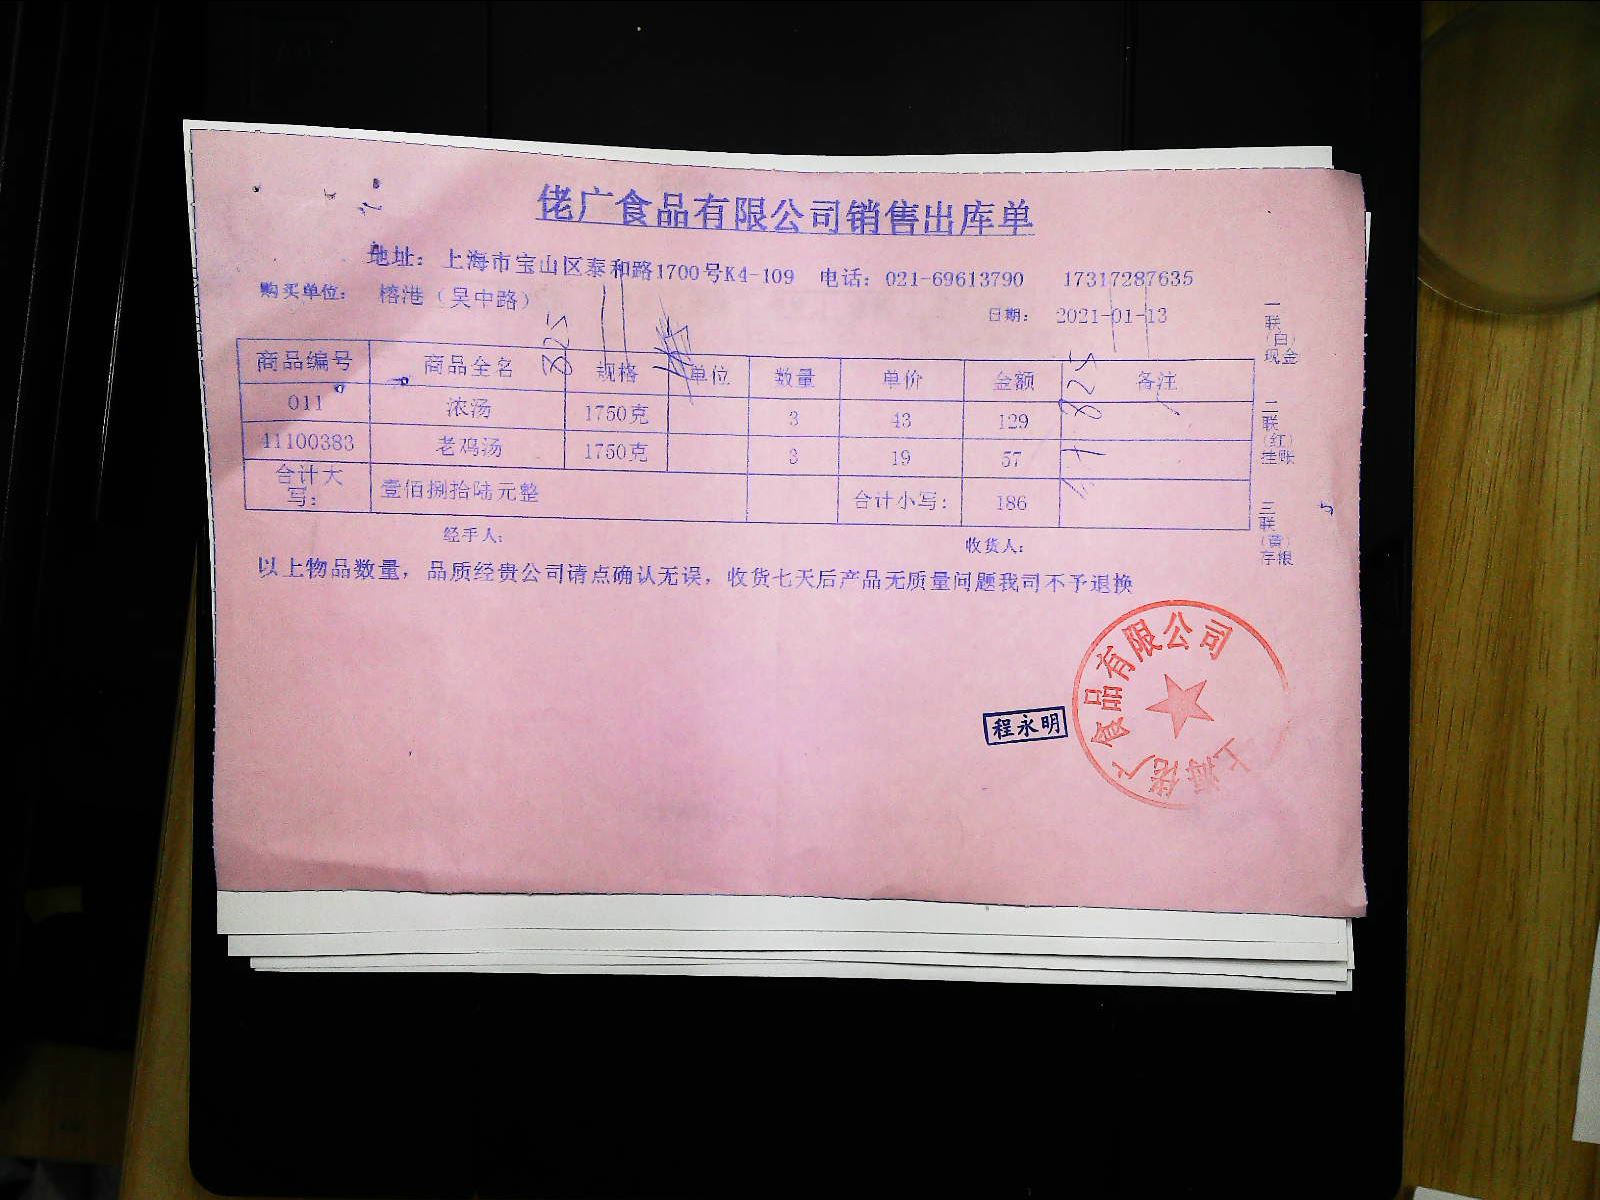 佬广食品有限公司销售出库单
地址：上海市宝山区泰和路1700号K4-109 电话：021-69613790 17317287635
购买单位：榕港（吴中路） 日期：2021-01-13
商品编号 商品全名 规格 单位 数量 单价 金额 备注
011 浓汤 1750克 3 43 129
41100383 老鸡汤 1750克 3 19 57
合计大写： 壹佰捌拾陆元整 合计小写： 186
经手人： 收货人：
以上物品数量，品质经贵公司请点确认无误，收货七天后产品无质量问题我司不予退换
一联（白）现金
二联（红）挂账
三联（黄）存根
825
825
程永明
上海佬广食品有限公司